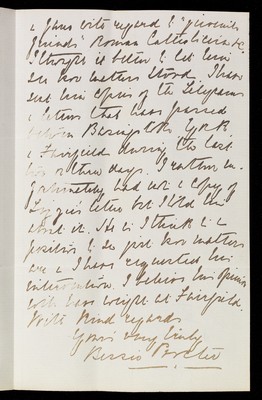 & James with regard to "juvenile
friends" Roman Catholicism &c.
I thought it better to let him
see how matters stood. I have
sent him copies of the Telegrams
& letters that have passed
between Basingstoke York
& Fairfield during the last
two or three days. I rather un-
fortunately had not a copy of
letter but I told him
about it. He is I think in a
position to see just how matters
are & I have requested his
intervention. I believe his opinion
will have weight at Fairfield.
With kind regards
Yours very truly
Bessie Porter